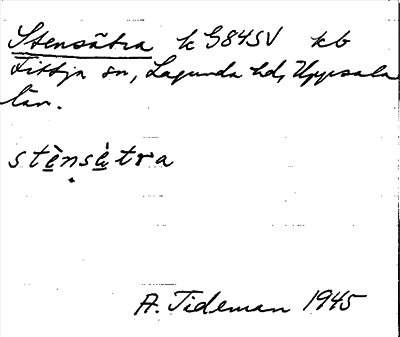 Stensätra k G845V kb
Fittja sn, Lagunda hd, Uppsala
län.
stè̱nsè̱tra
A. Tideman 1945